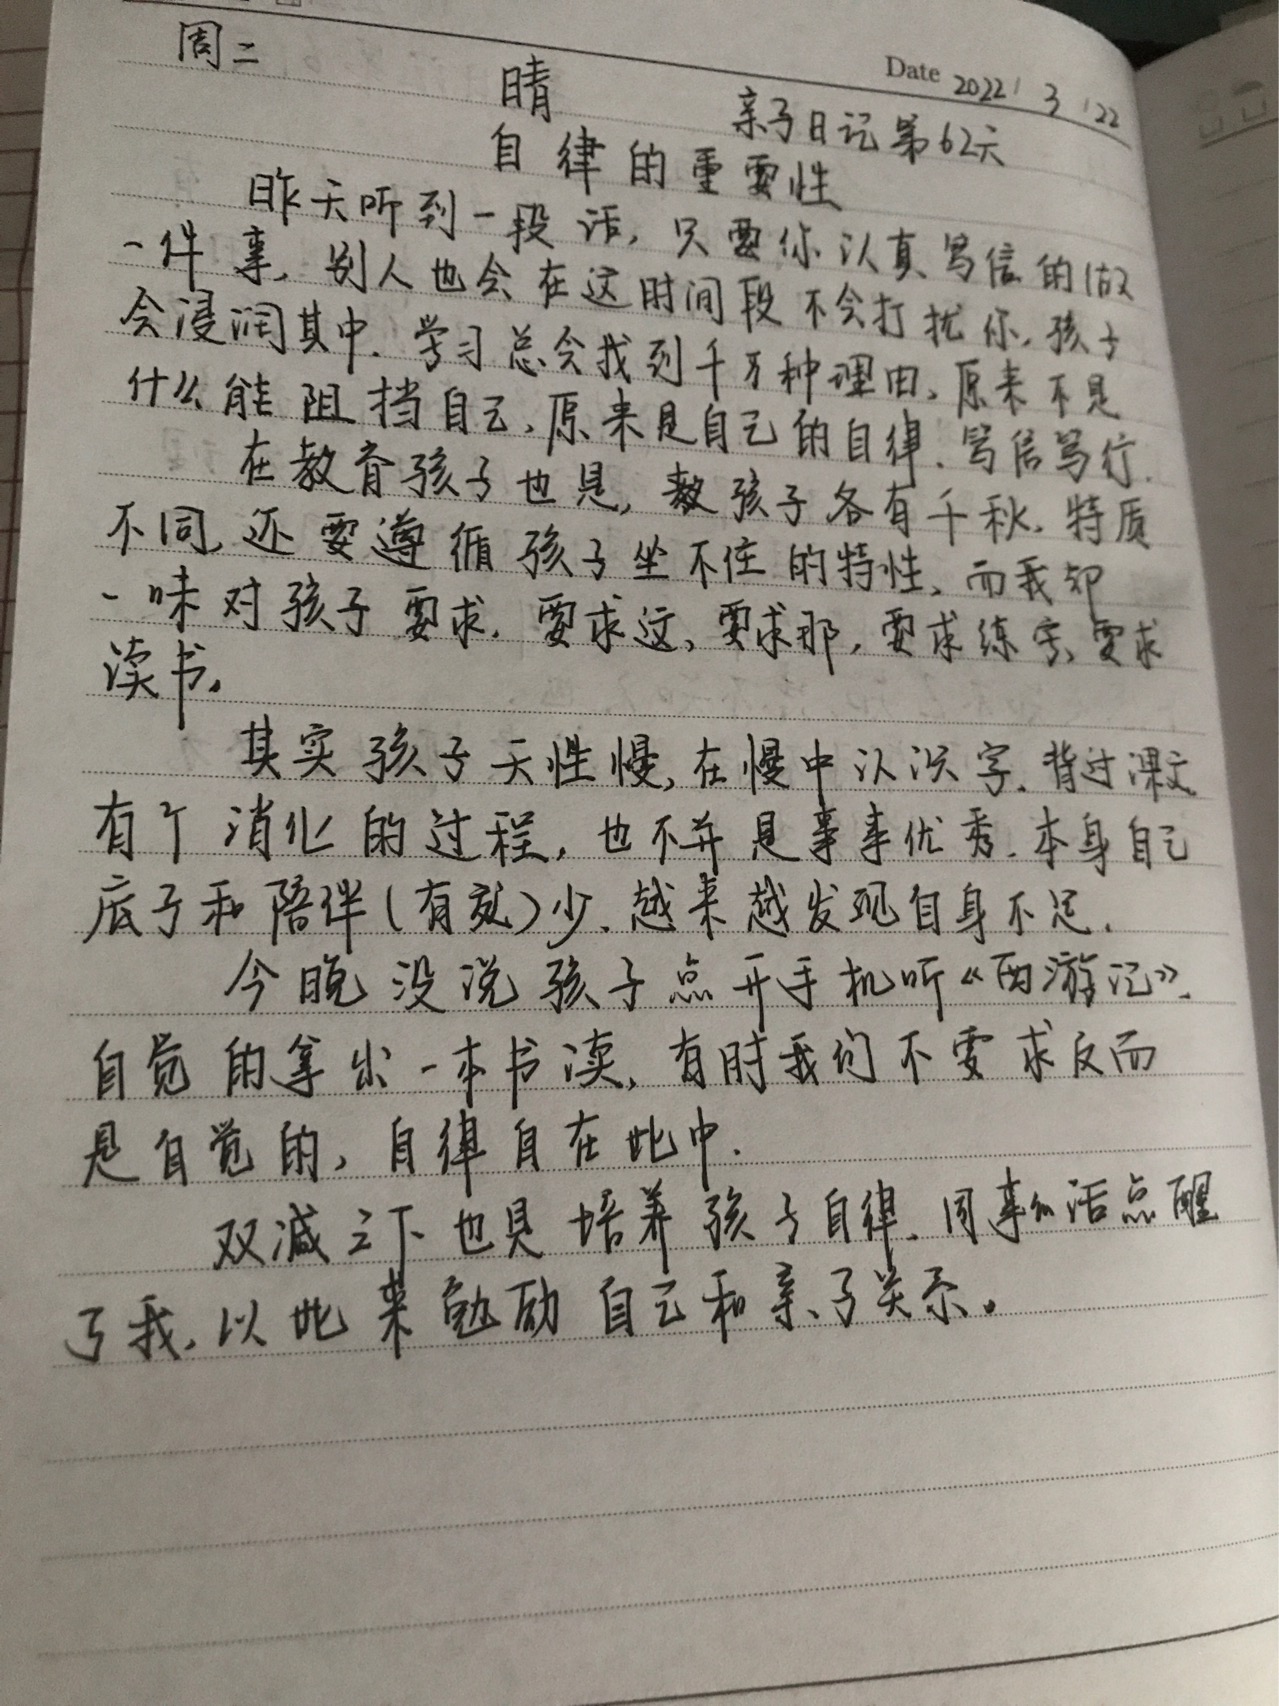 周二
晴
Date 2022/3/22
亲子日记第62天
自律的重要性
昨天听到一段话，只要你认真、笃信的做
一件事，别人也会在这时间段不会打扰你，孩子
会浸润其中．学习总会找到千万种理由，原来不是
什么能阻挡自己，原来是自己的自律．笃信笃行．
在教育孩子也是，教孩子各有千秋．特质
不同，还要遵循孩子坐不住的特性，而我却
一味对孩子要求，要求这，要求那，要求练字，要求
读书。
其实孩子天性慢，在慢中认识字．背过课文
有个消化的过程，也不并是事事优秀．本身自己
底子和陪伴(有效)少．越来越发现自身不足．
今晚没说孩子点开手机听《西游记》．
自觉的拿出一本书读，有时我们不要求反而
是自觉的，自律自在此中．
双减之下也是培养孩子自律．同事的话点醒
了我，以此来勉励自己和亲子关系。